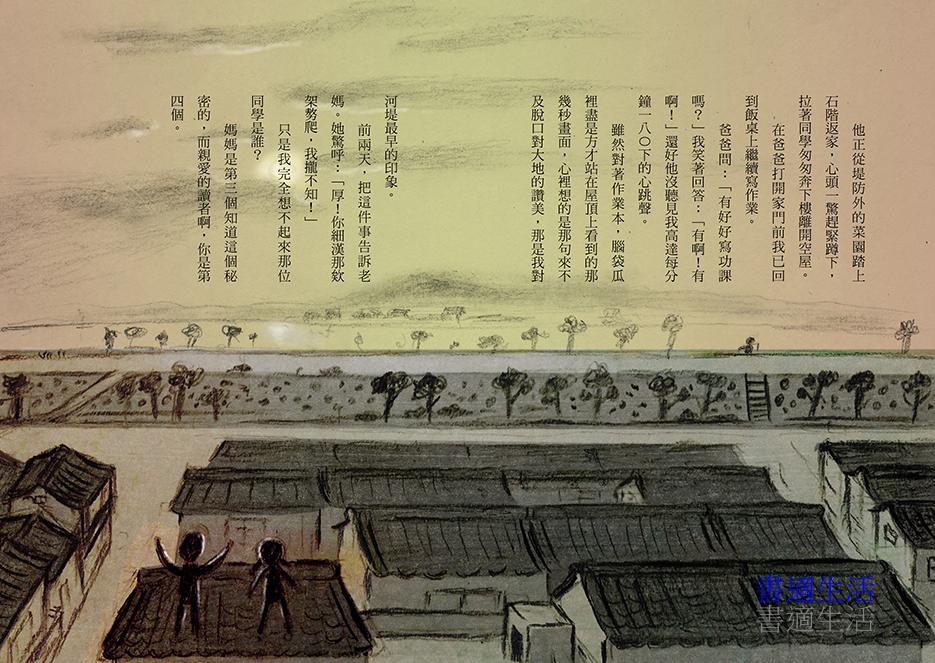 他正從堤防外的菜園踏上
石階返家，心頭一驚趕緊蹲下，
拉著同學匆匆奔下樓離開空屋。
在爸爸打開家門前我已回
到飯桌上繼續寫作業。
爸爸問：「有好好寫功課
嗎？」我笑著回答：「有啊！有
啊！」還好他沒聽見我高達每分
鐘一八〇下的心跳聲。
雖然對著作業本，腦袋瓜
裡盡是方才站在屋頂上看到的那
幾秒畫面，心裡想的是那句來不
及脫口對大地的讚美，那是我對
河堤最早的印象。
前兩天，把這件事告訴老
媽。她驚呼：「厚！你細漢那欸
架勢爬，我攏不知！」
只是我完全想不起來那位
同學是誰？
媽媽是第三個知道這個秘
密的，而親愛的讀者啊，你是第
四個。
書適生活
書適生活